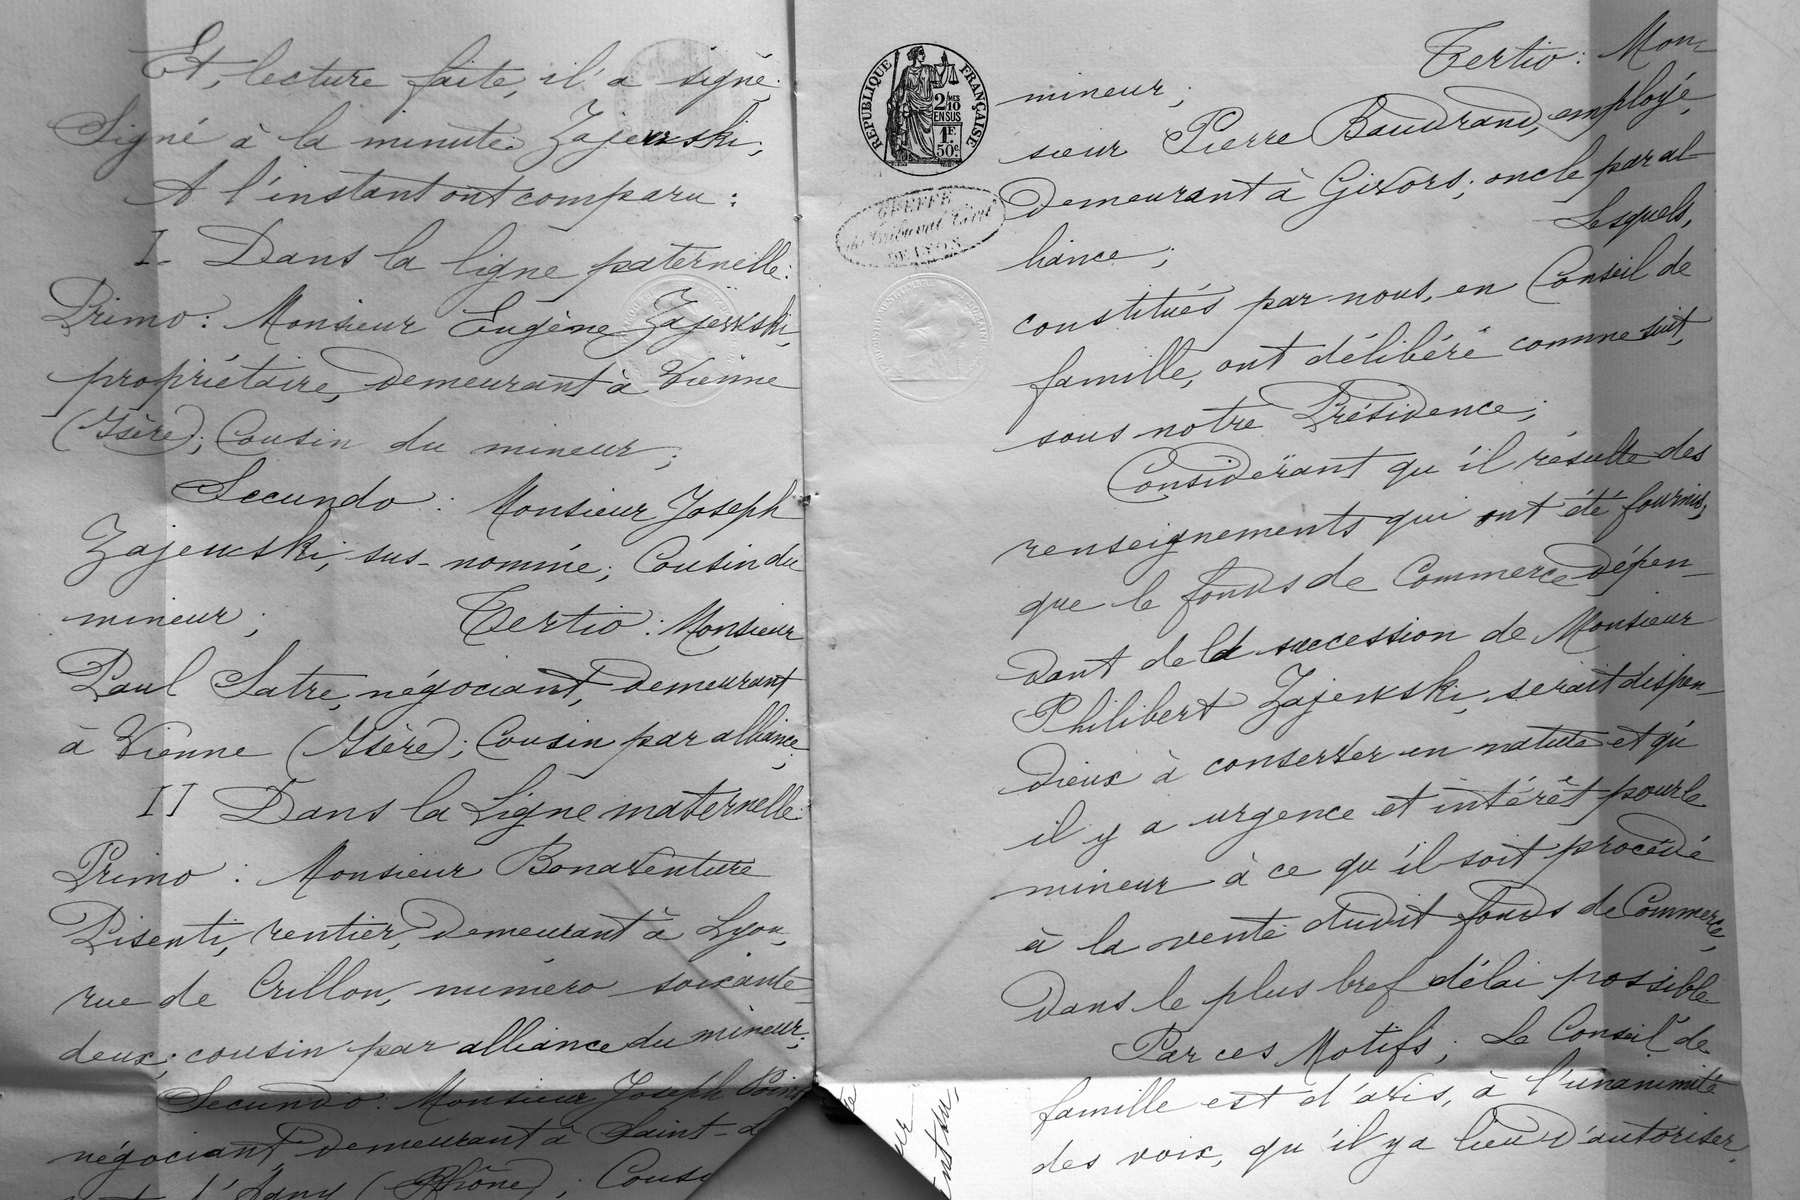 Et, lecture faite, il a signé.
Signé à la minute: Zajewski,
A l'instant ont comparu:
I. Dans la ligne paternelle:
Primo: Monsieur Eugène Zajewski,
propriétaire, demeurant à Vienne
(Isère); Cousin du mineur;
Secundo: Monsieur Joseph
Zajewski, sus-nommé; Cousin du
mineur; Tertio: Monsieur
Paul Satre, négociant, demeurant
à Vienne (Isère); Cousin par alliance;
II Dans la Ligne maternelle:
Primo: Monsieur Bonaventure
Pisenti, rentier, demeurant à Lyon,
rue de Crillon, numéro soixante-
deux; cousin par alliance du mineur;
Secundo: Monsieur Joseph
négociant demeurant à Saint-
(Rhône); Cous
RÉPUBLIQUE FRANÇAISE
2/10 MES
EN SUS
1F.
50c.
GREFFE
du Tribunal Civil
DE LYON
mineur; Tertio: Mon-
sieur Pierre Baudrand, employé,
demeurant à Givors; oncle par al
liance; Lesquels,
constitués par nous, en Conseil de
famille, ont délibéré comme suit,
sous notre Présidence;
Considérant qu'il résulte des
renseignements qui ont été fournis,
que le fonds de Commerce dépen-
dant de la succession de Monsieur
Philibert Zajewski, serait dispen-
dieux à conserver en nature et qu'
il y a urgence et intérêt pour le
mineur à ce qu'il soit procédé
à la vente dudit fonds de Commerce,
dans le plus bref délai possible
Par ces Motifs; Le Conseil de
famille est d'avis, à l'unanimité
des voix, qu'il y a lieu d'autoriser